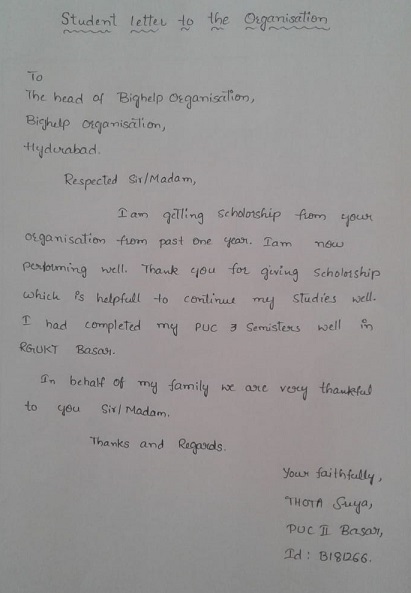 Student letter to the Organisation
To
The head of Bighelp Organisation,
Bighelp Organisation,
Hyderabad.
Respected Sir/Madam,
I am getting scholorship from your
organisation from past one year. Iam now
performing well. Thank you for giving scholorship
which is helpfull to continue my studies well.
I had completed my PUC 3 Semisters well in
RGUKT Basar.
In behalf of my family we are very thankful
to you Sir/Madam.
Thanks and Regards.
Your faithfully,
THOTA Suya,
PUC II Basar,
Id: B181266.